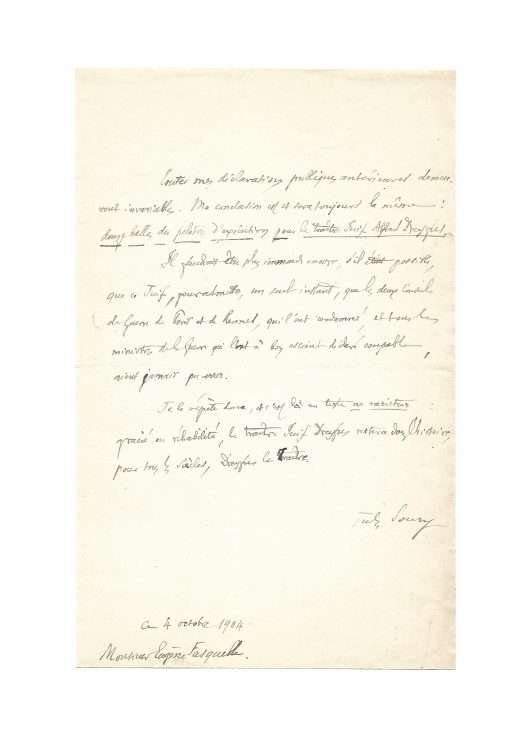 Toutes mes déclarations publiques antérieures demeu-
rent invariables. Ma conclusion est et sera toujours la même :
douze balles du peloton d'exécution pour le traître Juif Alfred Dreyfus.
Il faudrait être plus encore, s'il était possible,
que ce Juif, pour, un seul instant, que les deux Conseils
de Guerre de Paris et de Rennes, qui l'ont condamné, et tous les
ministres de la Guerre qui l'ont à bon escient déclaré coupable,
aient jamais pu errer.
Je le répète, et là un texte ne varietur :
gracié ou réhabilité, le traître Juif Dreyfus restera dans l'histoire,
pour tous les siècles, Dreyfus le traître.
Jules Soury
Ce 4 octobre 1904
Monsieur Eugène Fasquelle.